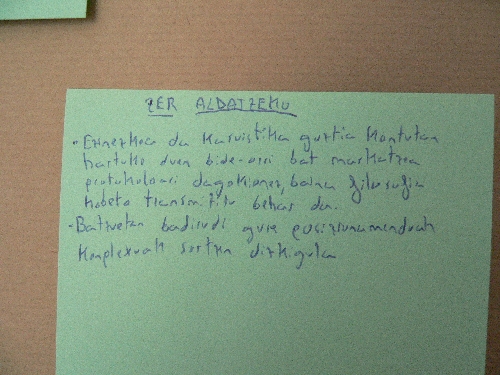 ZER ALDATZEKO
• Ezinezkoa da kasuistika guztia kontutan
hartuko duen bide-orri bat markatzea
protokoloari dagokionez, baina filosofia
hobeto transmititu behar da.
• Batzuetan badirudi gure posizionamenduak
konplexuak sortzen dizkigula